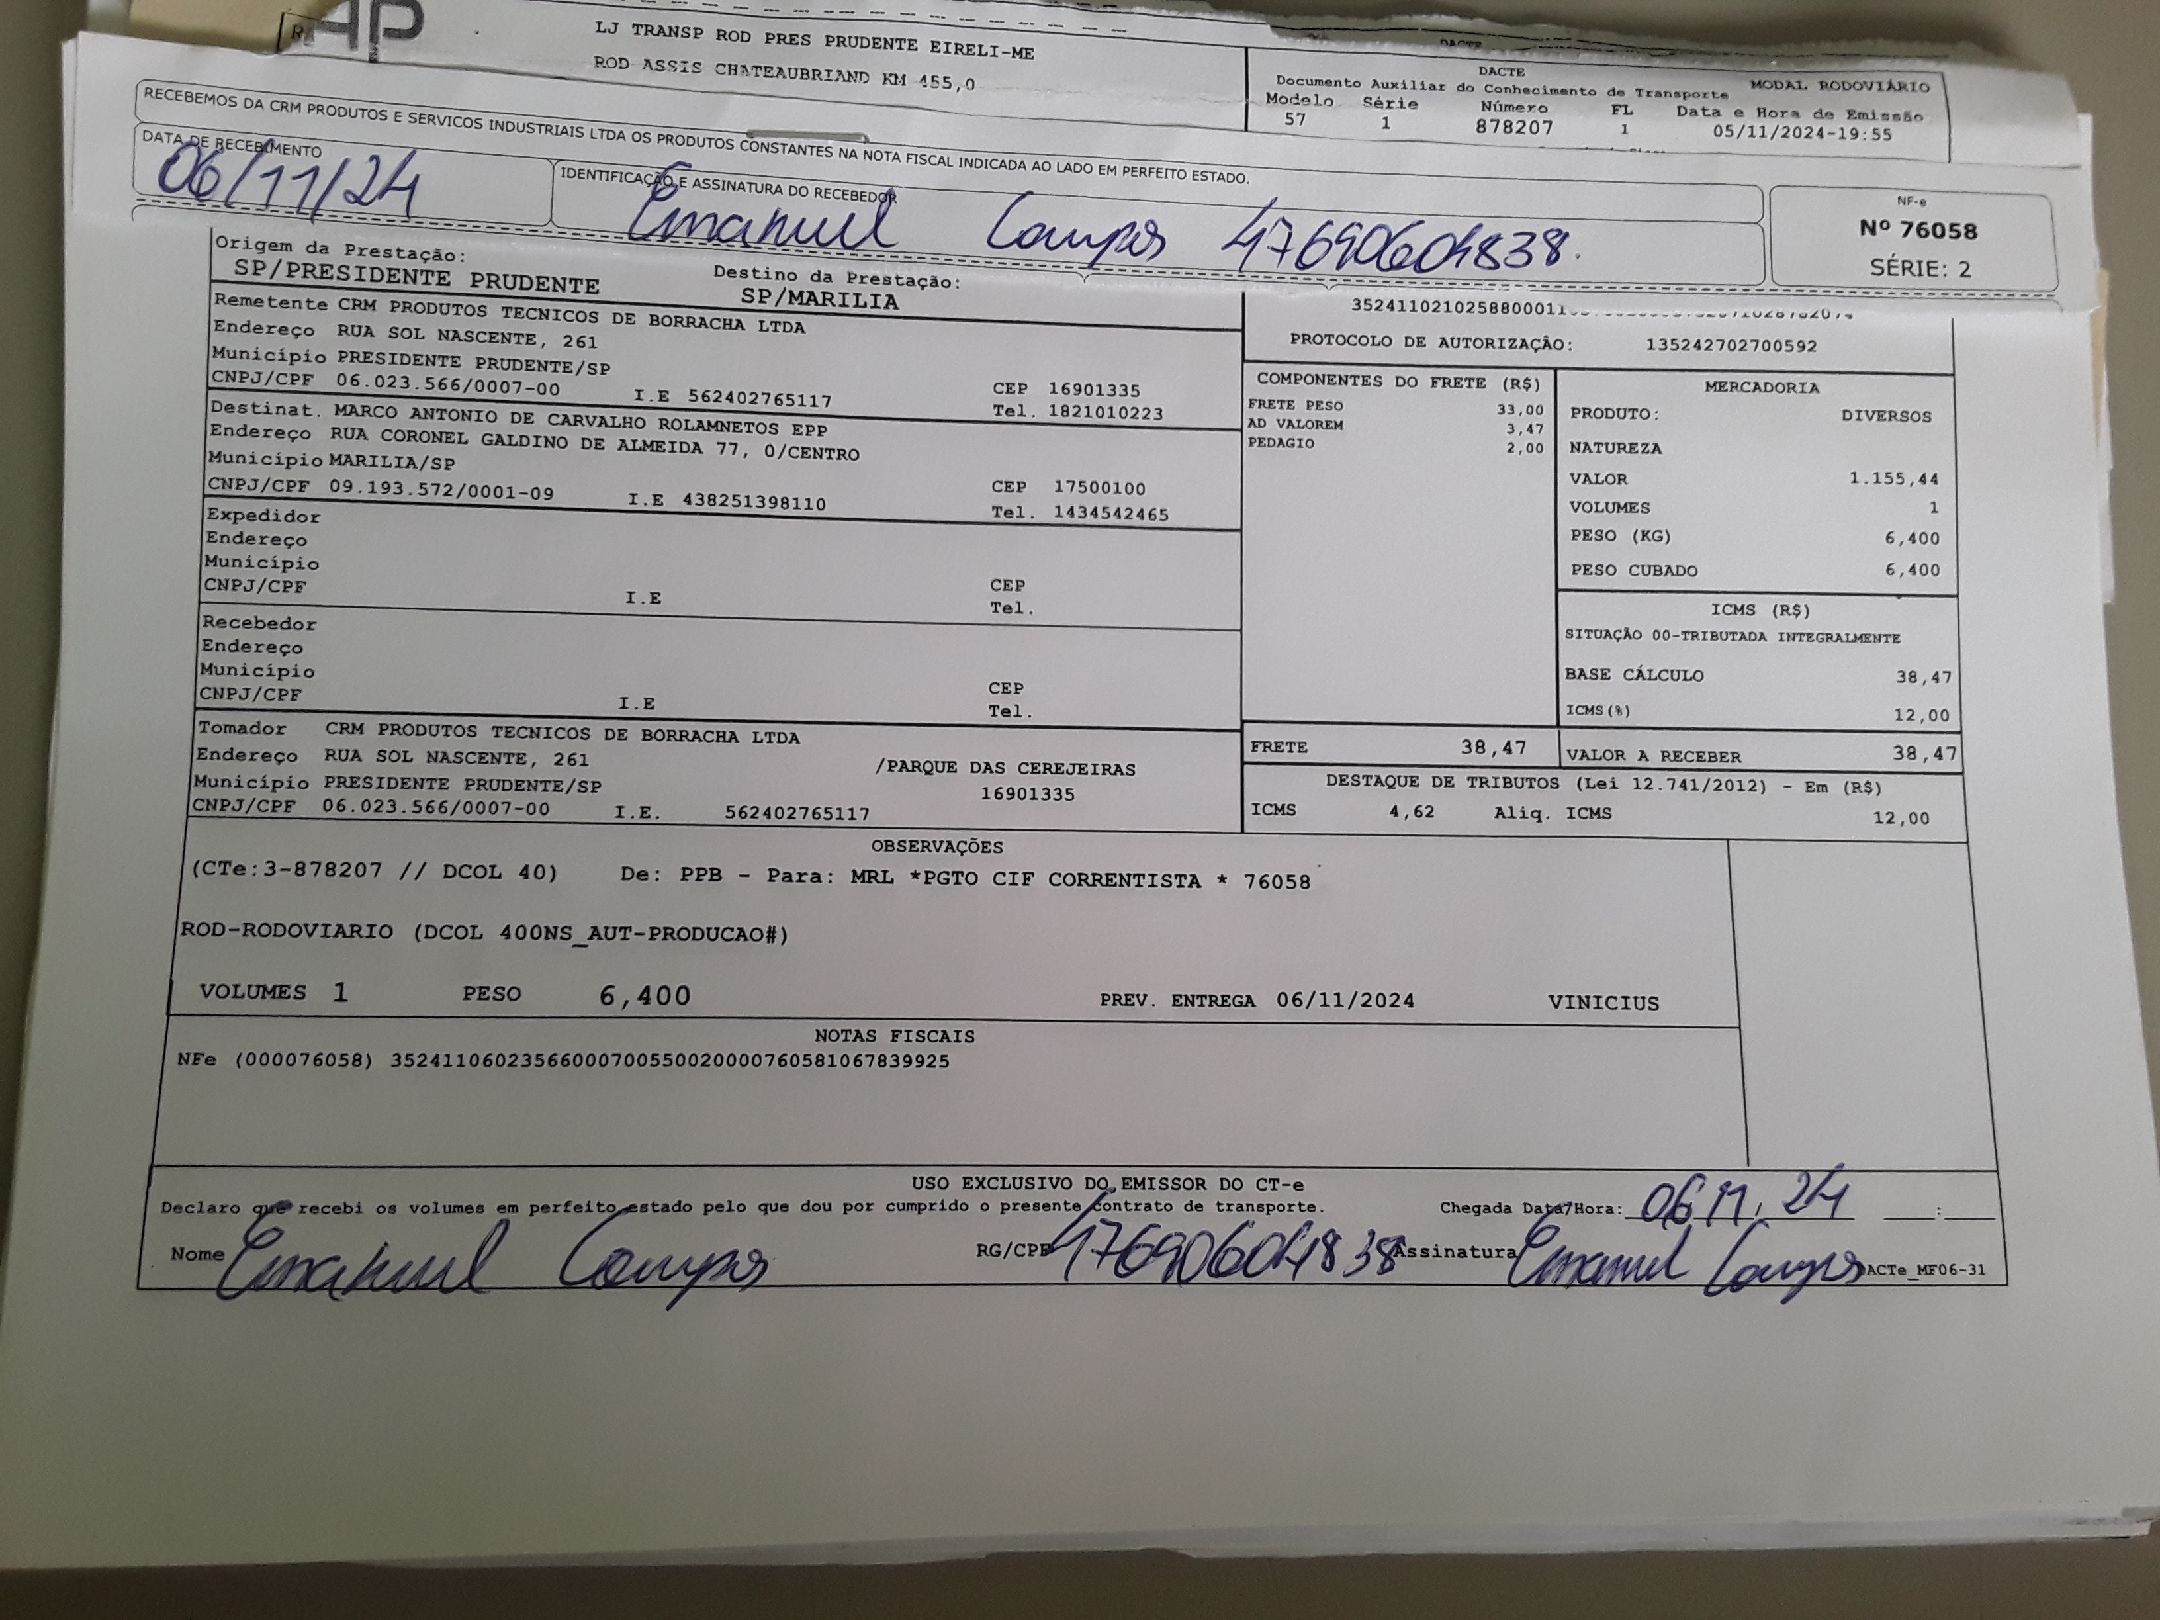 AP
LJ TRANSP ROD PRES PRUDENTE EIRELI-ME
ROD ASSIS CHATEAUBRIAND KM 455,0
DACTE
MODAL RODOVIÁRIO
Documento Auxiliar do Conhecimento de Transporte
Modelo Série Número FL Data e Hora de Emissão
57 1 878207 1 05/11/2024-19:55
RECEBEMOS DA CRM PRODUTOS E SERVICOS INDUSTRIAIS LTDA OS PRODUTOS CONSTANTES NA NOTA FISCAL INDICADA AO LADO EM PERFEITO ESTADO.
DATA DE RECEBIMENTO
06/11/24
IDENTIFICAÇÃO E ASSINATURA DO RECEBEDOR
Emanuel Campos 47690604838.
NF-e
Nº 76058
SÉRIE: 2
Origem da Prestação:
SP/PRESIDENTE PRUDENTE
Destino da Prestação:
SP/MARILIA
Remetente CRM PRODUTOS TECNICOS DE BORRACHA LTDA
Endereço RUA SOL NASCENTE, 261
Município PRESIDENTE PRUDENTE/SP
CNPJ/CPF 06.023.566/0007-00 I.E 562402765117
CEP 16901335
Tel. 1821010223
Destinat. MARCO ANTONIO DE CARVALHO ROLAMNETOS EPP
Endereço RUA CORONEL GALDINO DE ALMEIDA 77, 0/CENTRO
Município MARILIA/SP
CNPJ/CPF 09.193.572/0001-09 I.E 438251398110
CEP 17500100
Tel. 1434542465
Expedidor
Endereço
Município
CNPJ/CPF I.E
CEP
Tel.
Recebedor
Endereço
Município
CNPJ/CPF I.E
CEP
Tel.
Tomador CRM PRODUTOS TECNICOS DE BORRACHA LTDA
Endereço RUA SOL NASCENTE, 261 /PARQUE DAS CEREJEIRAS
Município PRESIDENTE PRUDENTE/SP 16901335
CNPJ/CPF 06.023.566/0007-00 I.E. 562402765117
PROTOCOLO DE AUTORIZAÇÃO: 135242702700592
COMPONENTES DO FRETE (R$)
FRETE PESO 33,00
AD VALOREM 3,47
PEDAGIO 2,00
MERCADORIA
PRODUTO: DIVERSOS
NATUREZA
VALOR 1.155,44
VOLUMES 1
PESO (KG) 6,400
PESO CUBADO 6,400
ICMS (R$)
SITUAÇÃO 00-TRIBUTADA INTEGRALMENTE
BASE CÁLCULO 38,47
ICMS(%) 12,00
FRETE 38,47
VALOR A RECEBER 38,47
DESTAQUE DE TRIBUTOS (Lei 12.741/2012) - Em (R$)
ICMS 4,62 Aliq. ICMS 12,00
OBSERVAÇÕES
(CTe:3-878207 // DCOL 40) De: PPB - Para: MRL *PGTO CIF CORRENTISTA * 76058
ROD-RODOVIARIO (DCOL 400NS_AUT-PRODUCAO#)
VOLUMES 1 PESO 6,400 PREV. ENTREGA 06/11/2024 VINICIUS
NOTAS FISCAIS
NFe (000076058) 35241106023566000700550020000760581067839925
USO EXCLUSIVO DO EMISSOR DO CT-e
Declaro que recebi os volumes em perfeito estado pelo que dou por cumprido o presente contrato de transporte.
Chegada Data/Hora: 06 11. 24 :
Nome Emanuel Campos RG/CPF 47690604838 Assinatura Emanuel Campos
DACTe_MF06-31